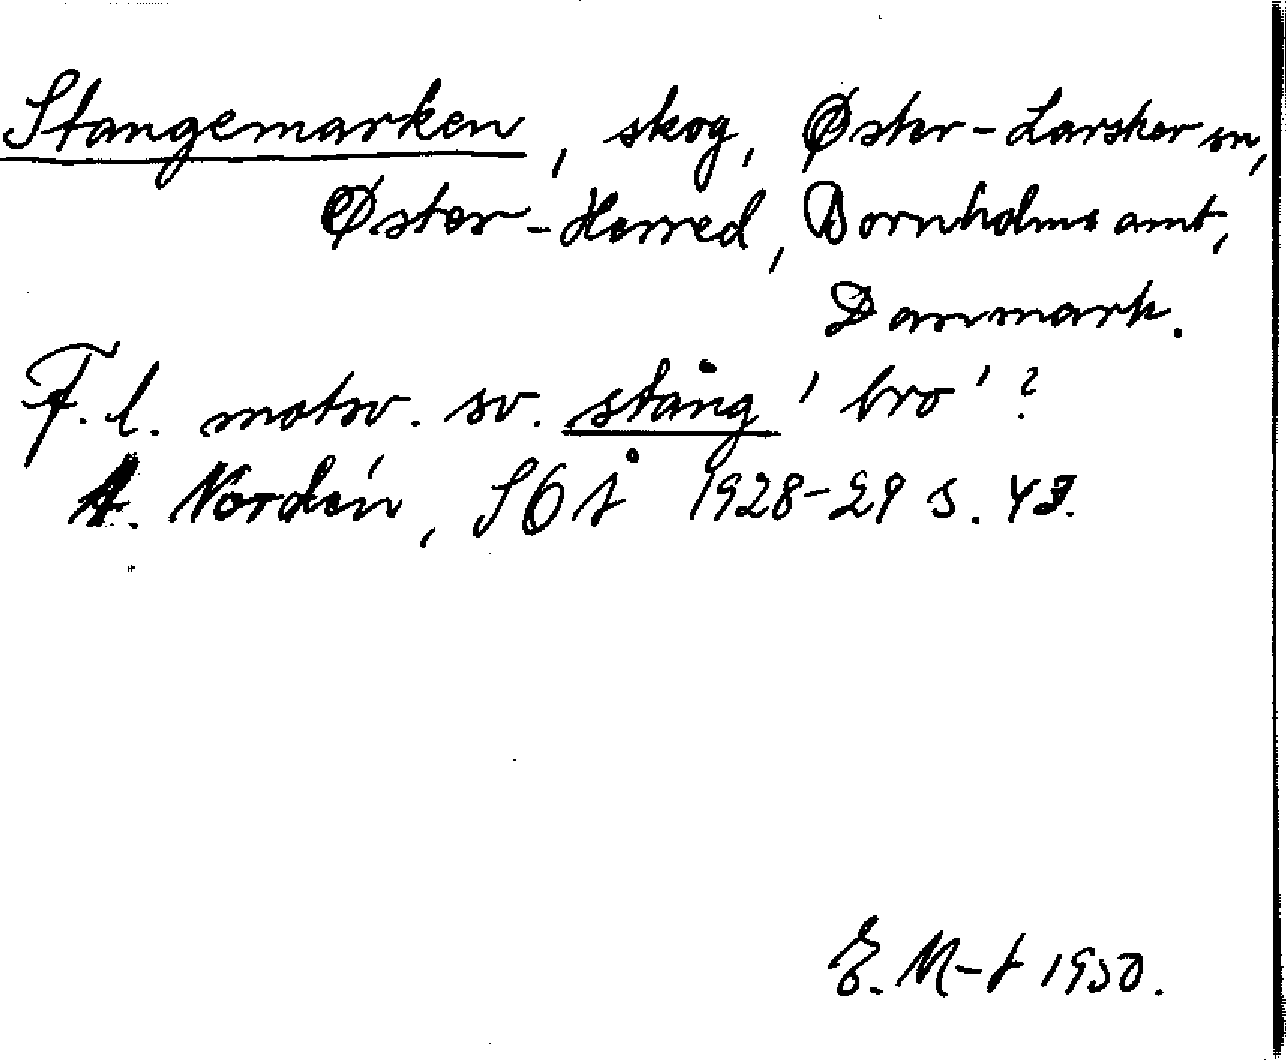 Stangemarken, skog, Øster-Larsker sn,
Øster-Herred, Bornholms amt,
Danmark.
F.l. motsv. sv. stång 'bro'?
A. Nordén, SOÅ 1928-29 s. 43.
E. M-t 1950.